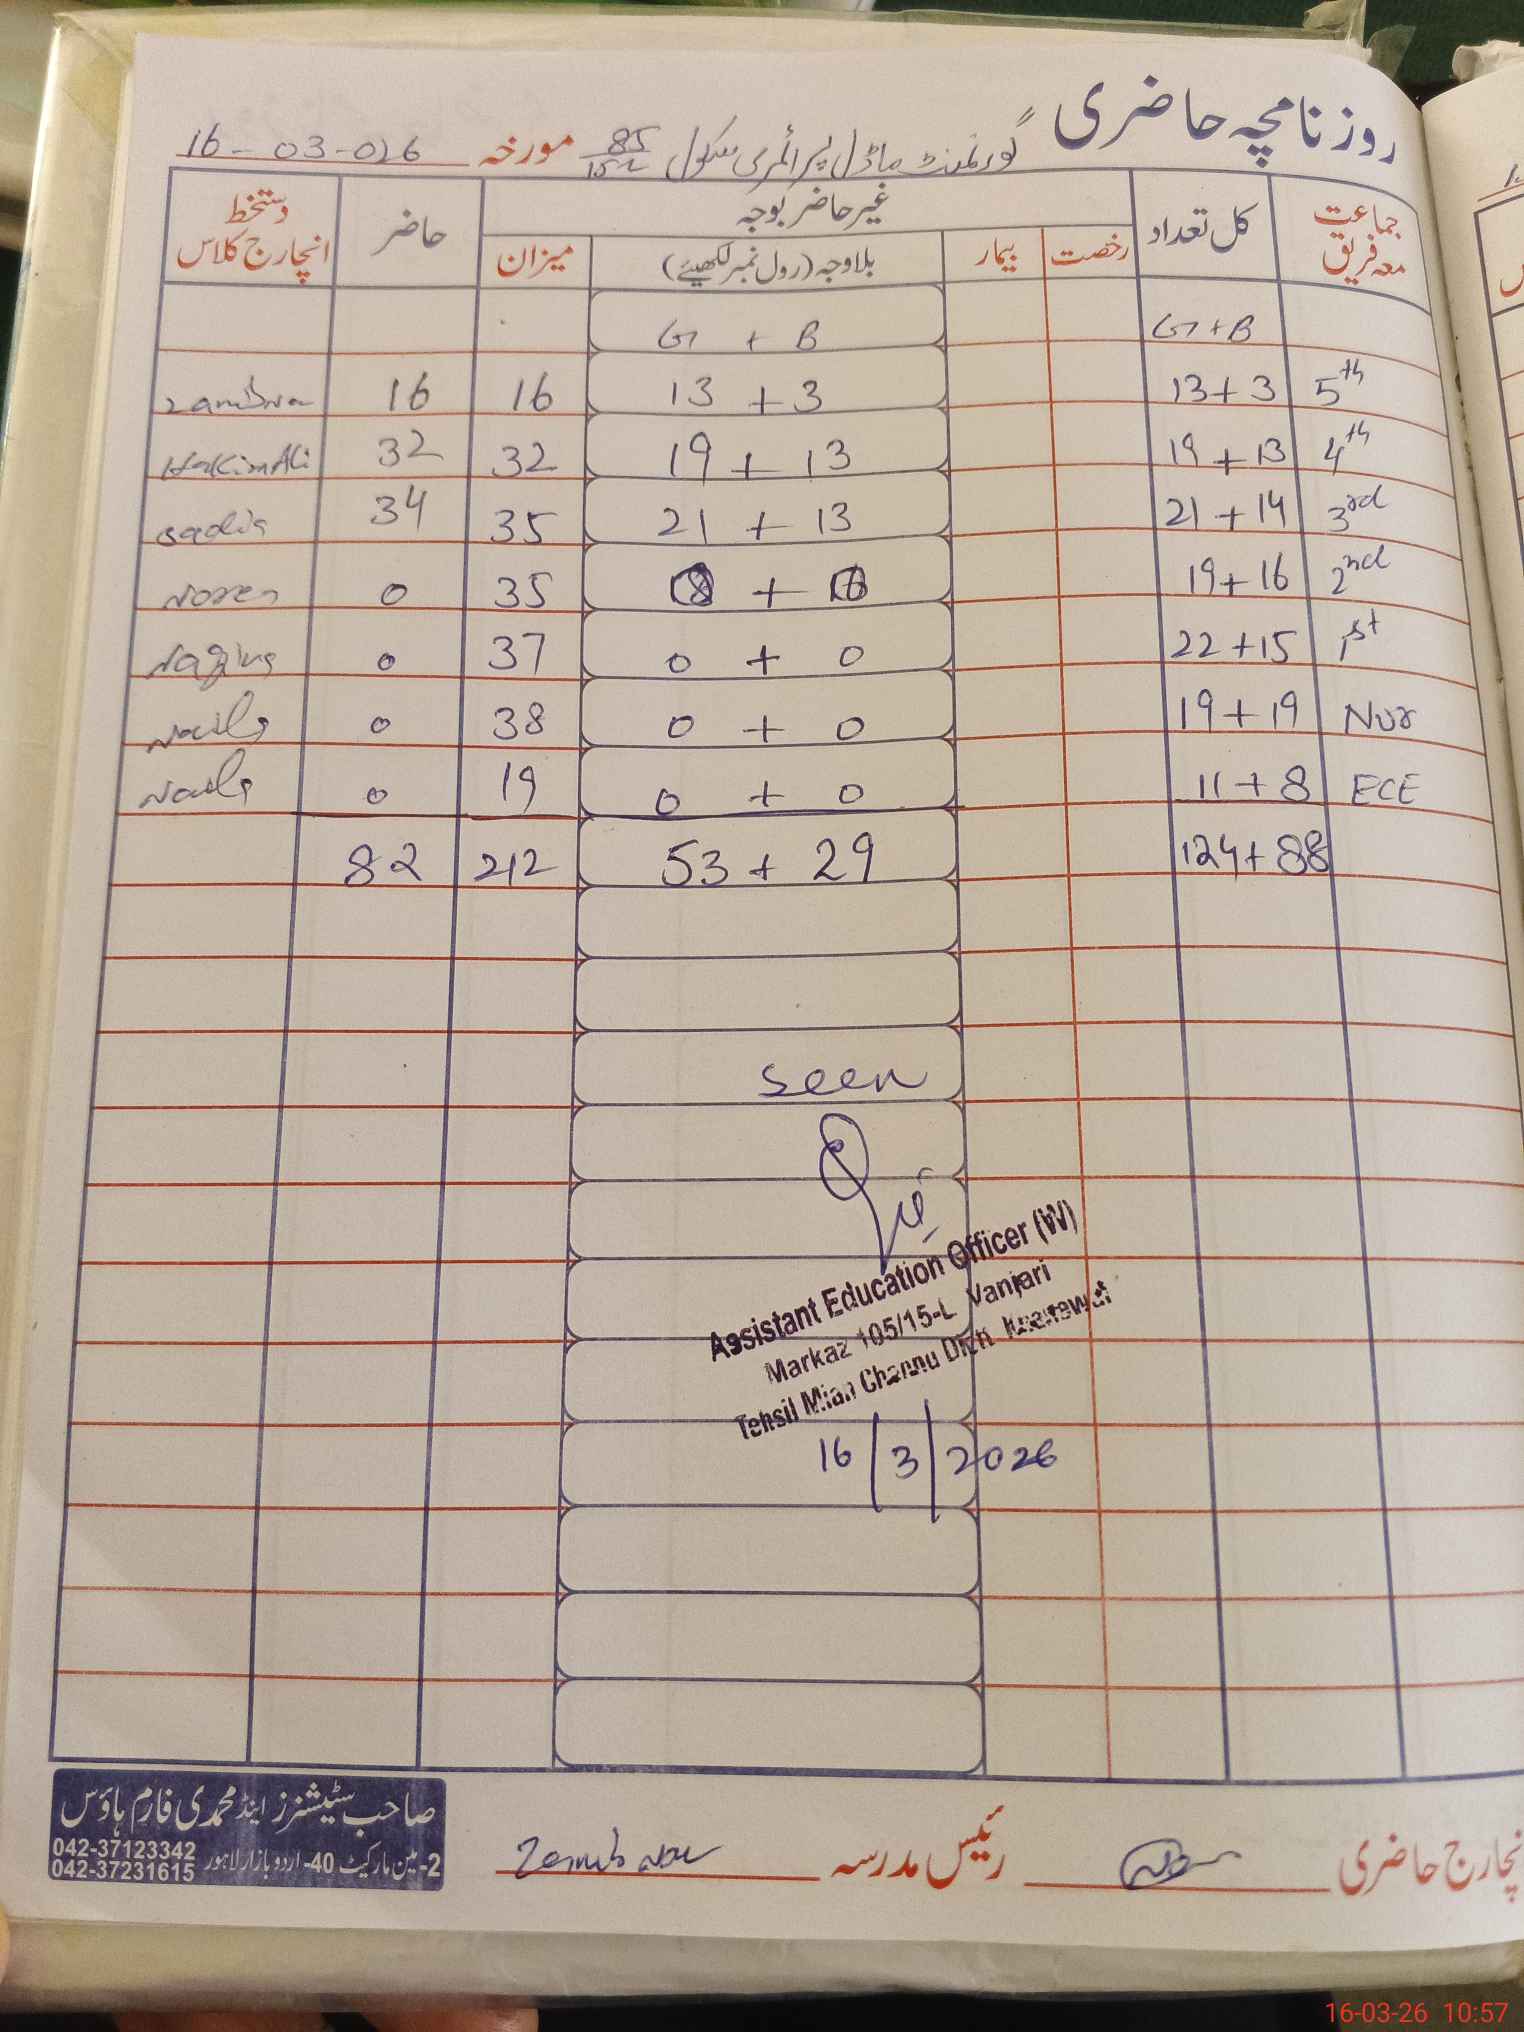 روزنامچہ حاضری گورنمنٹ ماڈل پرائمری سکول 85/15L مورخہ 16-03-026
جماعت معہ فریق کل تعداد غیر حاضر بوجہ حاضر دستخط انچارج کلاس
رخصت بیمار بلاوجہ (رول نمبر لکھیئے) میزان
G+B G + B
5th 13+3 13 + 3 16 16
4th 19+13 19 + 13 32 32 Hakim Ali
3rd 21+14 21 + 13 35 34 sadia
2nd 19+16 + 35 0
1st 22+15 0 + 0 37 0
Nur 19+19 0 + 0 38 0
ECE 11+8 0 + 0 19 0
124+88 53 + 29 212 82
seen
Assistant Education Officer (W)
Markaz 105/15-L Vanjari
Tehsil Mian Channu Distt. Khanewal
16/3/2026
نچارج حاضری رئیس مدرسہ
صاحب سٹیشنرز اینڈ محمدی فارم ہاؤس
2-مین مارکیٹ 40-اردو بازار لاہور 042-37123342
042-37231615
16-03-26 10:57